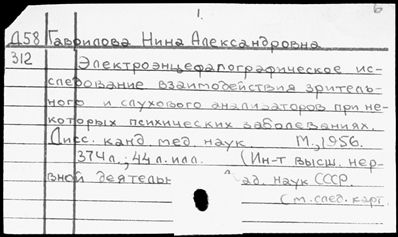 1.
б
Д58 Гаврилова Нина Александровна
312 Электроэнцефалографическое ис-
следование взаимодействия зритель-
ного и слухового анализаторов при не-
которых психических заболеваниях.
Дисс. канд. мед. наук. М., 1956.
374 л.; 44 л. илл. (Ин-т высш. нер-
вной деятельн ад. наук СССР.
См. след. карт.